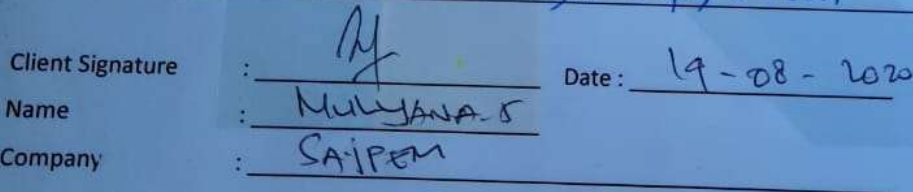 Client Signature : Date : 19-08-2020
Name : MULYANA.S
Company : SAIPEM